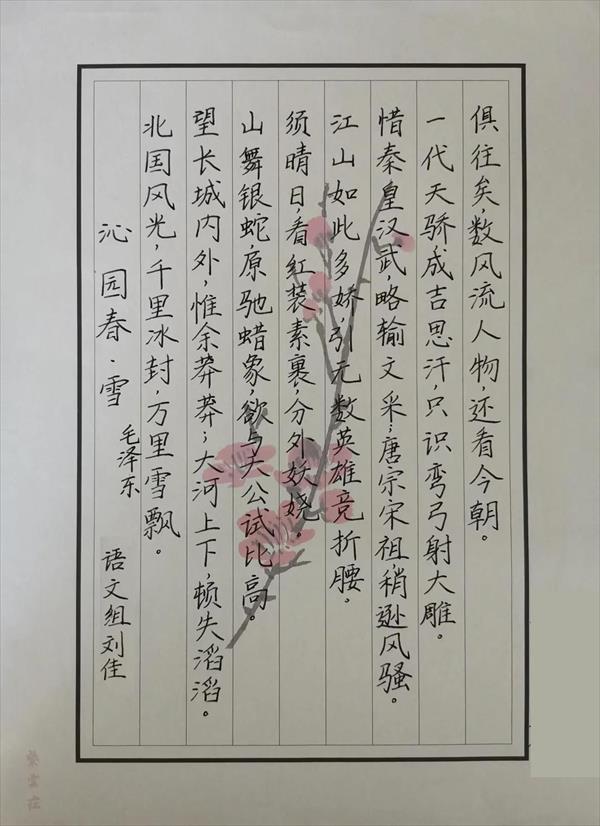 沁园春·雪
毛泽东
语文组刘佳
北国风光，千里冰封，万里雪飘。
望长城内外，惟余莽莽；大河上下，顿失滔滔。
山舞银蛇，原驰蜡象，欲与天公试比高。
须晴日，看红装素裹，分外妖娆。
江山如此多娇，引无数英雄竞折腰。
惜秦皇汉武，略输文采；唐宗宋祖，稍逊风骚。
一代天骄，成吉思汗，只识弯弓射大雕。
俱往矣，数风流人物，还看今朝。